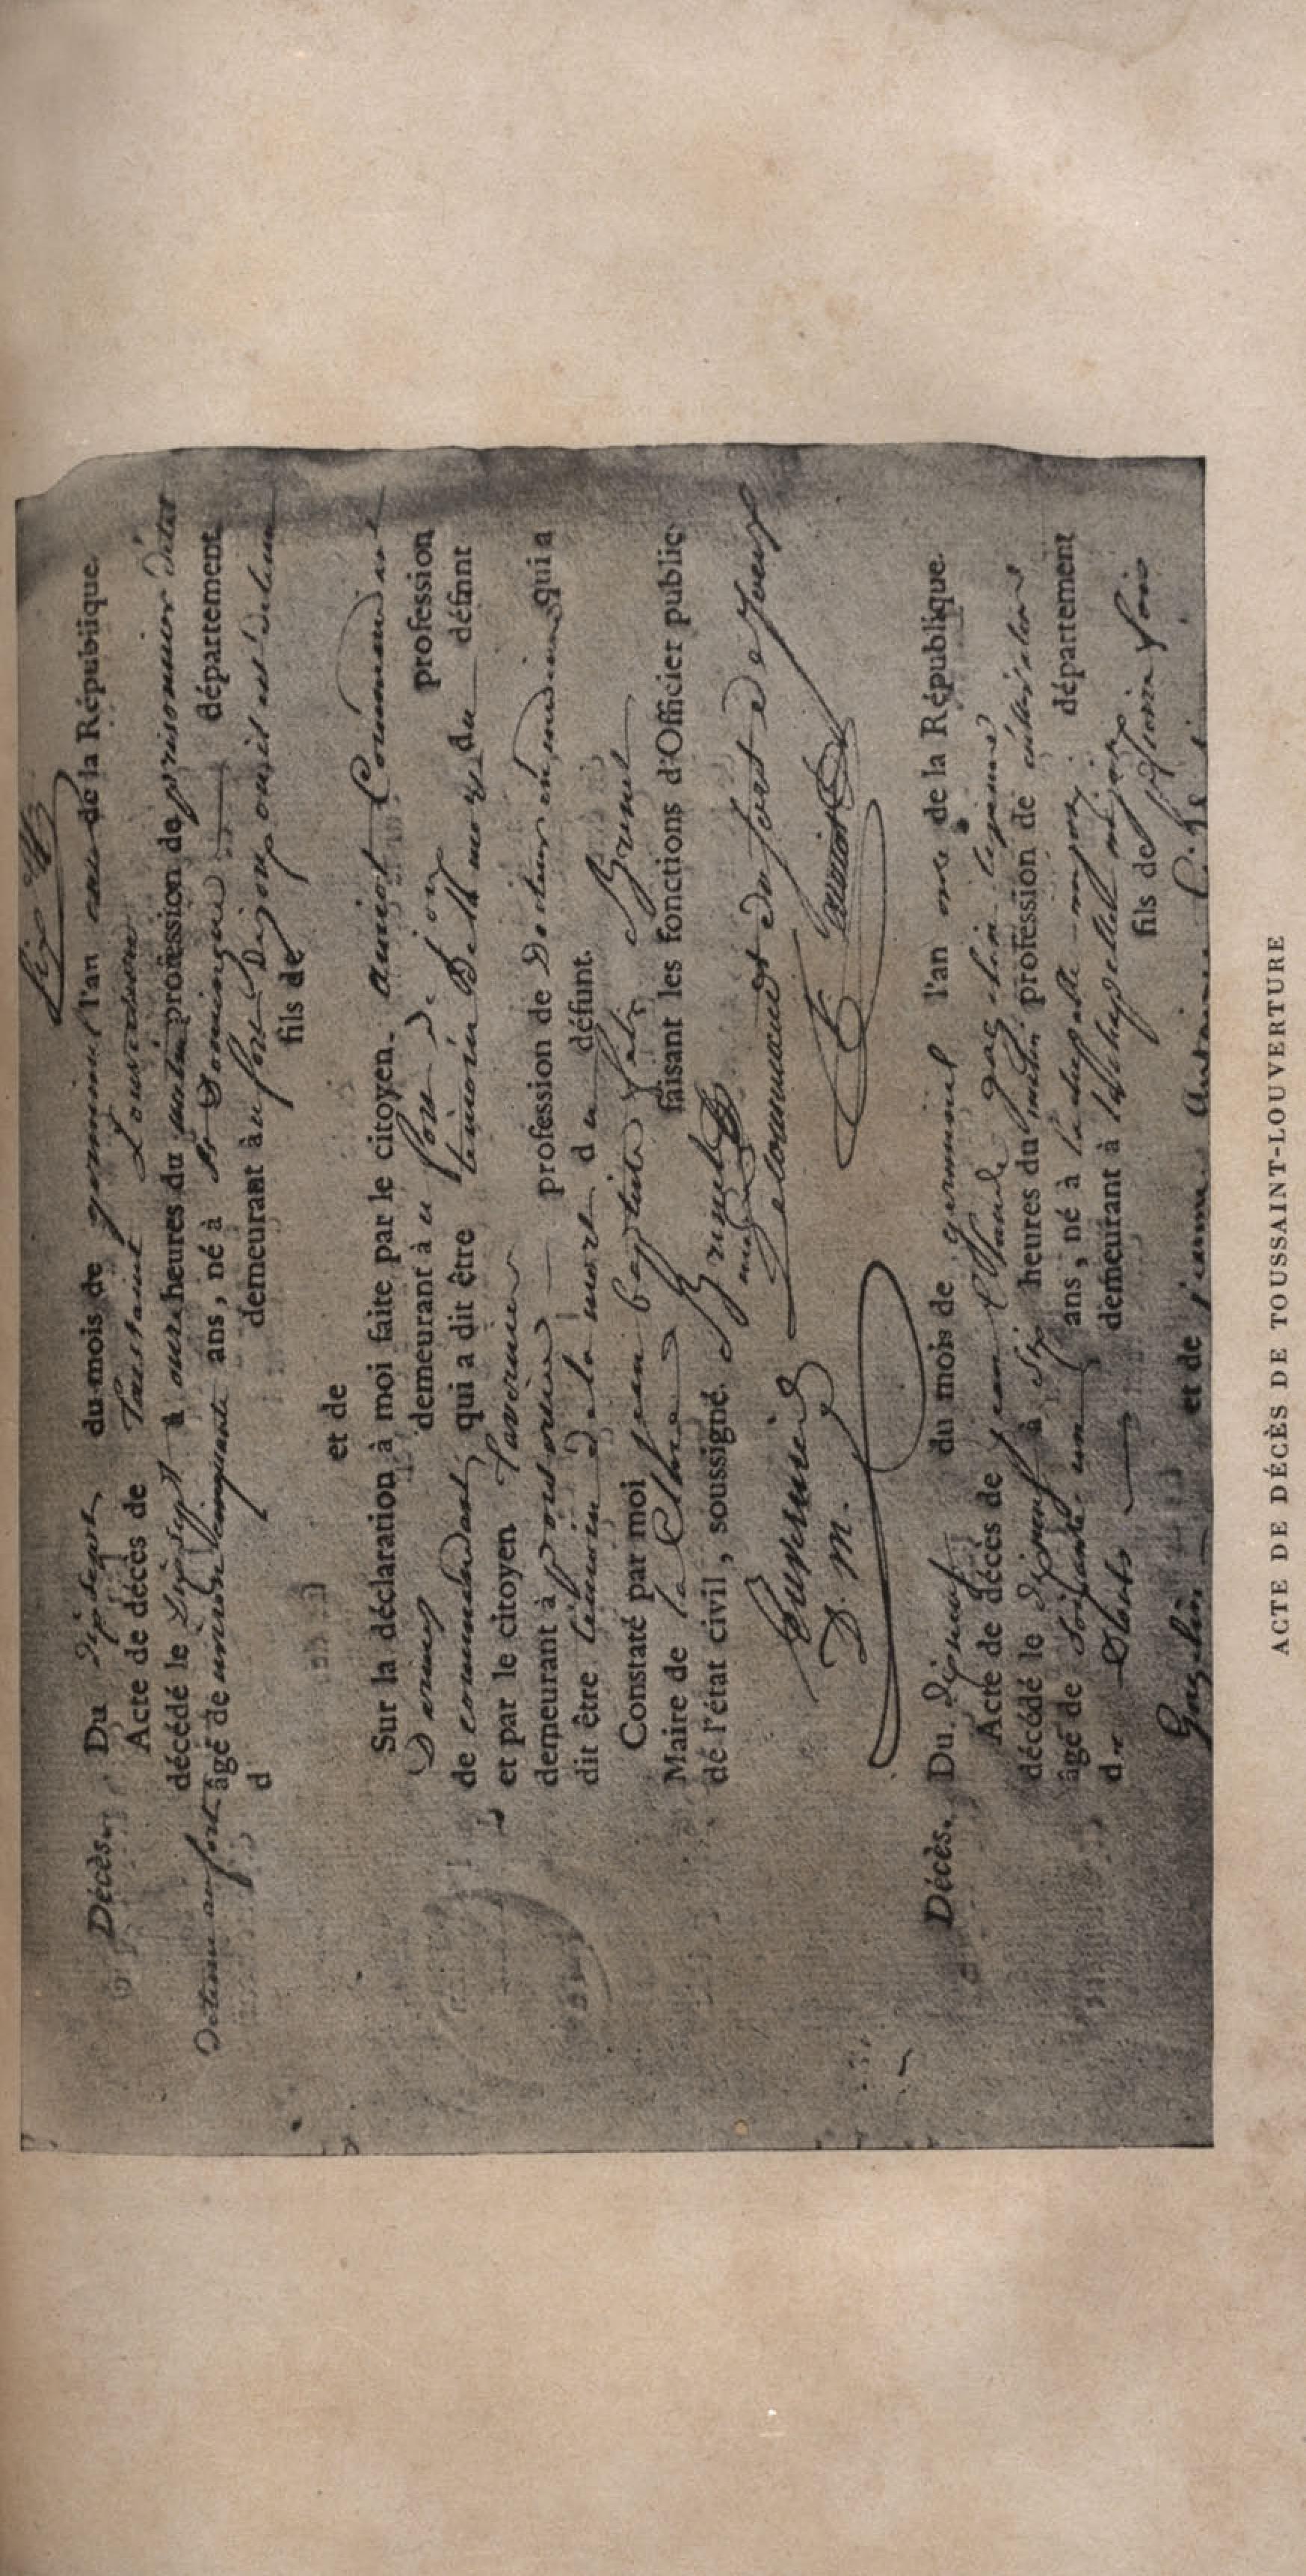 Décès. Du dix sept du mois de germinal l'an onze de la République.
Acte de décès de Toussaint Louverture
décédé le dix sept à onze heures du matin profession de prisonnier
detenu au fort âgé de environ cinquante ans, né à St Domingue département
d demeurant au fort de joux où il est detenu
fils de
et de
Sur la déclaration à moi faite par le citoyen amiot Commandant
D'armes demeurant à u fort de joux profession
de commandant qui a dit être témoin de la mort du défunt
et par le citoyen Tavernier
demeurant à pontarlier profession de Docteur en medecine qui a
dit être témoin de la mort du défunt.
Constaté par moi jean baptiste Brunet
Maire de la Cluse faisant les fonctions d'Officier public
dé l'état civil, soussigné.
Brunet
maire
Tavernier
D. m.
Le commandant du fort de joux
Amiot
Décès. Du dixneuf du mois de germinal l'an onze de la République.
Acte de décès de jean Claude
décédé le dixneuf à six heures du matin profession de cultivateur
âgé de soixante un ans, né à département
du Doubs demeurant à
fils de
et de jeanne
ACTE DE DÉCÈS DE TOUSSAINT-LOUVERTURE